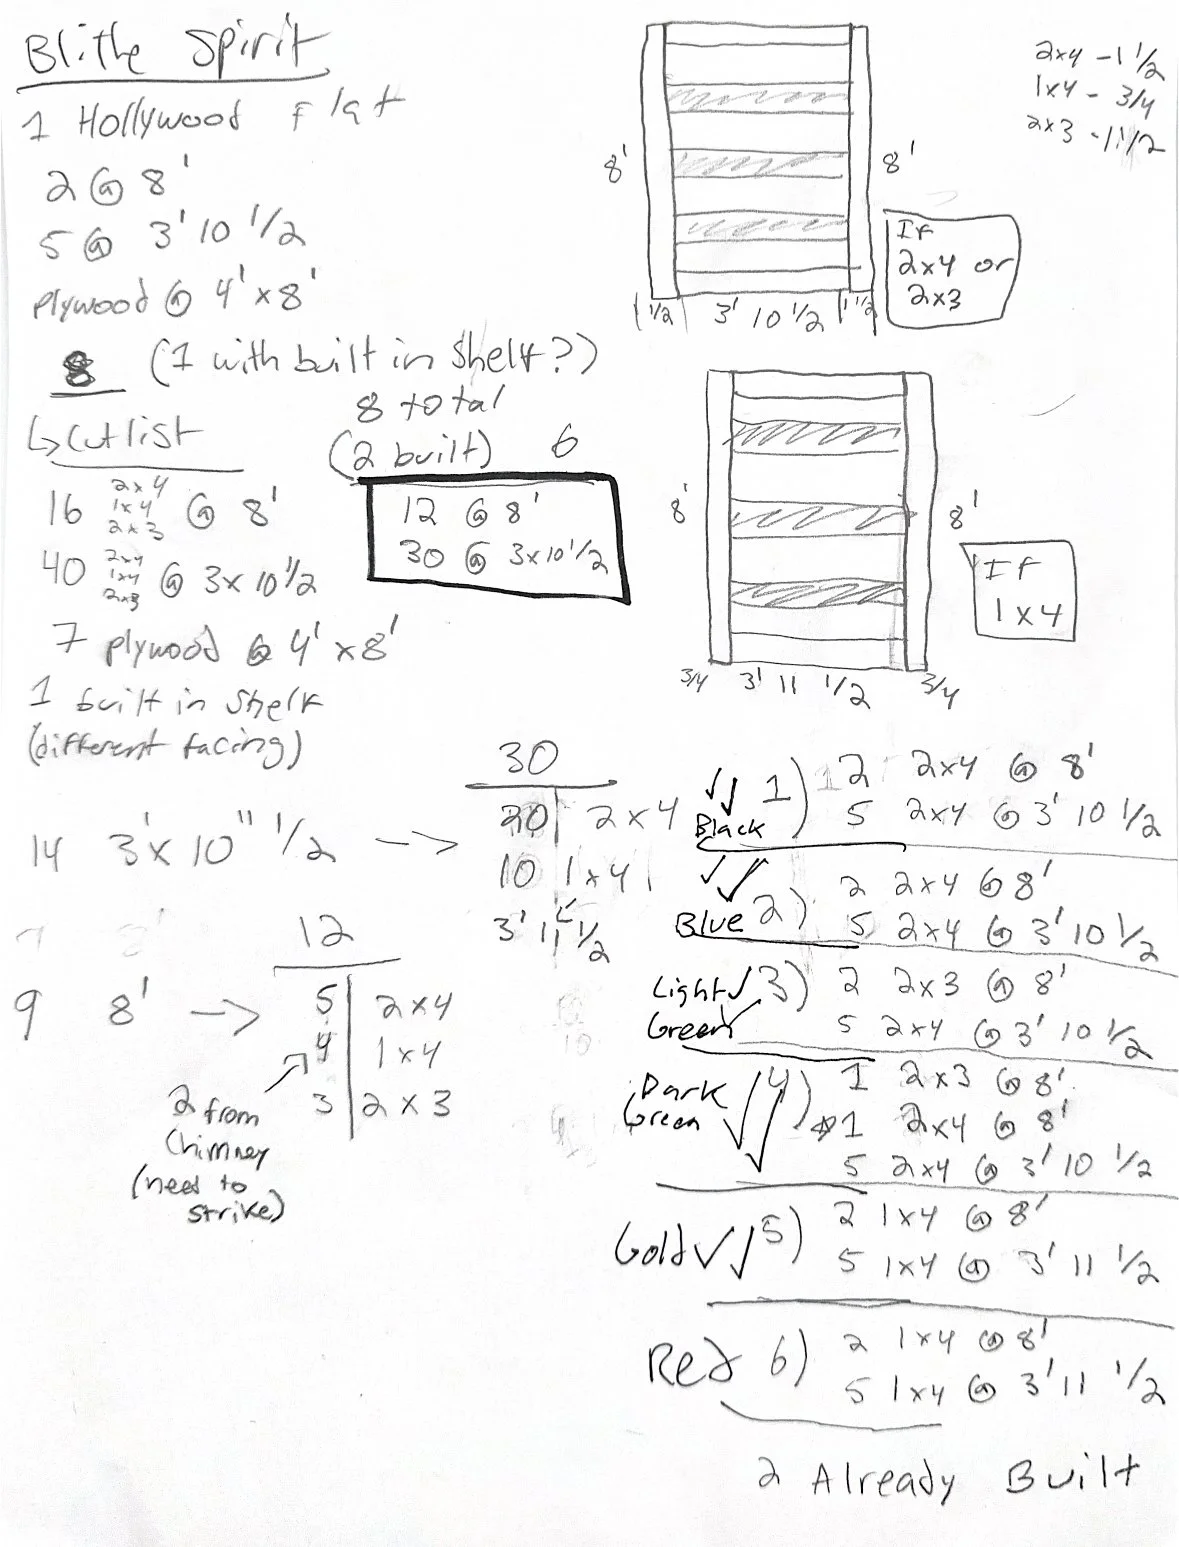 Blithe Spirit
1 Hollywood Flat
2 @ 8'
5 @ 3' 10 1/2
plywood @ 4' x 8'
8 (1 with built in shelf?)
↳ Cut list
16 2x4 1x4 2x3 @ 8'
40 2x4 1x4 2x3 @ 3x 10 1/2
7 plywood @ 4' x 8'
1 built in shelf
(different facing)
8 total
(2 built) 6
12 @ 8'
30 @ 3x10 1/2
14 3'x 10" 1/2 ->
30
20 2x4
10 1x4
3' 11 1/2
9 8' ->
12
5 2x4
4 1x4
3 2x3
2 from
Chimney
(need to
strike)
8' 8'
1 1/2 3' 10 1/2 1 1/2
If
2x4 or
2x3
2x4 - 1 1/2
1x4 - 3/4
2x3 - 1 1/2
8' 8'
3/4 3' 11 1/2 3/4
If
1x4
Black 1) 2 2x4 @ 8'
5 2x4 @ 3' 10 1/2
Blue 2) 2 2x4 @ 8'
5 2x4 @ 3' 10 1/2
Light Green 3) 2 2x3 @ 8'
5 2x4 @ 3' 10 1/2
Dark Green 4) 1 2x3 @ 8'
1 2x4 @ 8'
5 2x4 @ 3' 10 1/2
Gold 5) 2 1x4 @ 8'
5 1x4 @ 3' 11 1/2
Red 6) 2 1x4 @ 8'
5 1x4 @ 3' 11 1/2
2 Already Built